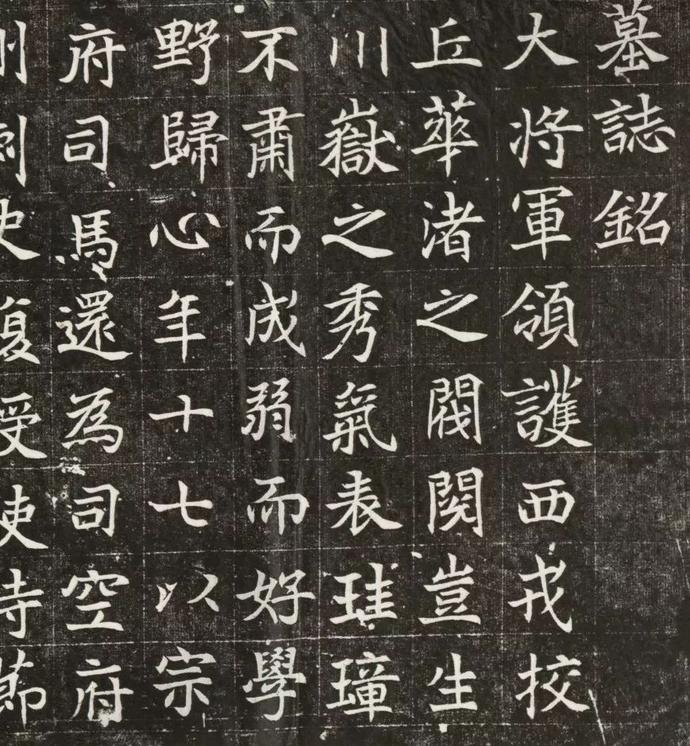 墓誌銘
大将軍領護西戎挍
丘華渚之閥閱豈生
川嶽之秀氣表珪璋
不肅而成弱而好學
野歸心年十七以宗
府司馬還為司空府
史復受使持節